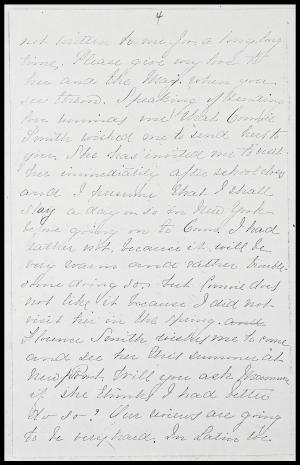 4
not written to me for a long long
time. Please give my love to
her and the May. when you
see them. Speaking of sending
love reminds me that Connie
Smith wished me to send hers to
you. She has invited me to visit
her immediately after school closes
and I presume that I shall
stay a day or so in New York
before going on to Conn. I had
rather not, because it will be
very warm and rather trouble-
some doing so, but Connie does
not like it because I did not
visit her in the spring. and
Florence Smith wishes me to come
and see her this summer at
New Point. Will you ask Mamma
if she thinks I had better
do so? Our exams are going
to be very hard. In Latin we